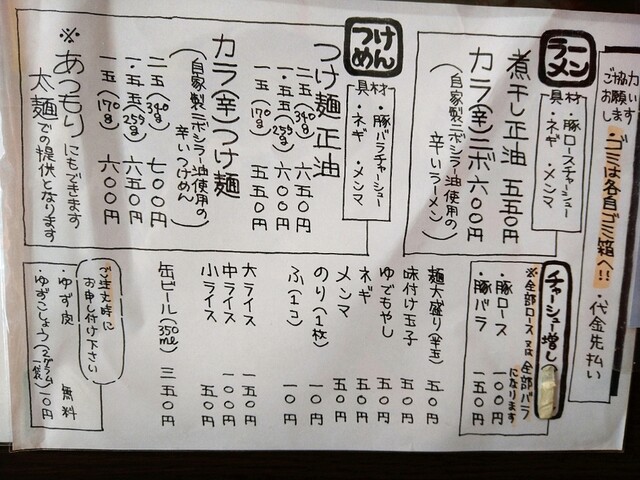 ご協力
お願いします
・ゴミは各自ゴミ箱へ!!
・代金先払い
ラーメン
具材
・豚ロースチャーシュー
・ネギ ・メンマ
煮干し正油 五五〇円
カラ(辛)ニボ 六〇〇円
(自家製ニボシラー油使用の
辛いラーメン)
つけめん
具材
・豚バラチャーシュー
・ネギ ・メンマ
つけ麺正油
二玉(340g) 六五〇円
一.五玉(255g) 六〇〇円
一玉(170g) 五五〇円
カラ(辛)つけ麺
(自家製ニボシラー油使用の
辛いつけめん)
二玉(340g) 七〇〇円
一.五玉(255g) 六五〇円
一玉(170g) 六〇〇円
※あつもりにもできます
太麺での提供となります
チャーシュー増し
※全部ロース 又は 全部バラ
になります
・豚ロース 一〇〇円
・豚バラ 一五〇円
麺大盛り(半玉) 五〇円
味付け玉子 五〇円
ゆでもやし 五〇円
ネギ 五〇円
メンマ 五〇円
のり(1枚) 一〇円
ふ(1コ) 一〇円
大ライス 一五〇円
中ライス 一〇〇円
小ライス 五〇円
缶ビール(350ml) 三五〇円
ご注文時に
お申し付け下さい
・ゆず皮 無料
・ゆずこしょう(2グラム一袋) 一〇円